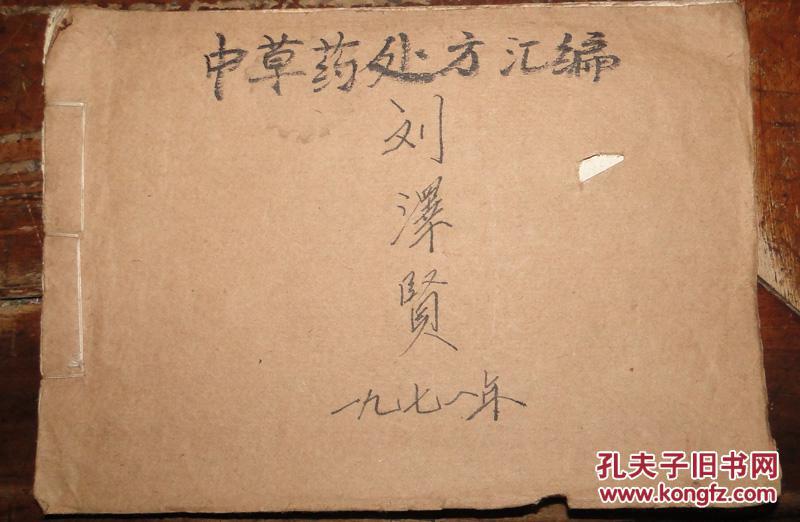 中草药处方汇编
刘
澤
贤
一九七一年
孔夫子旧书网
www.kongfz.com